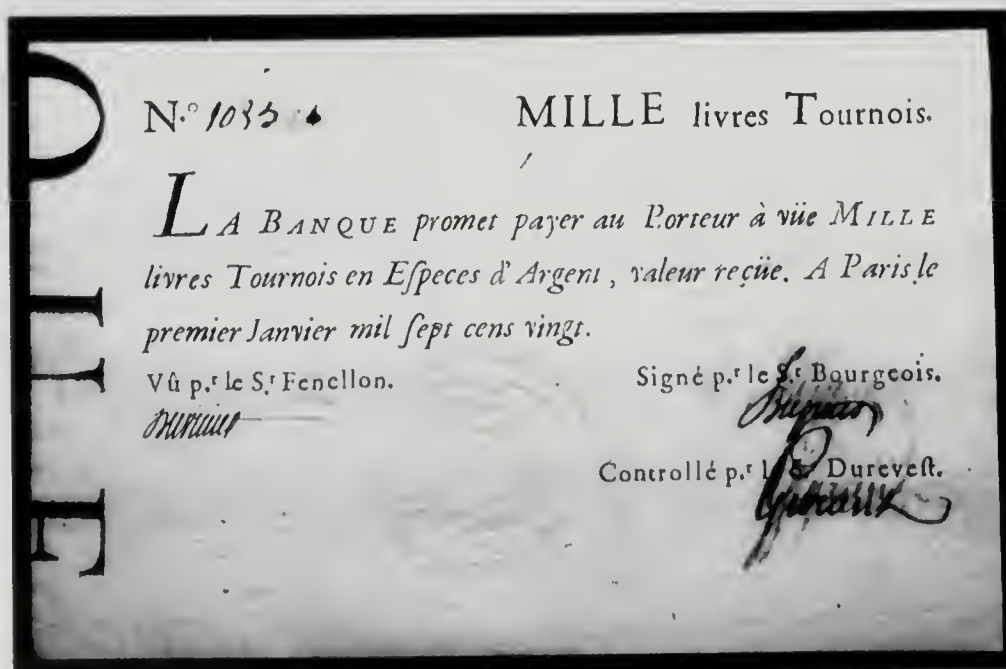 N.º MILLE livres Tournois.
LA BANQUE promet payer au Porteur à vüe MILLE
livres Tournois en Eſpeces d'Argent, valeur reçüe. A Paris le
premier Janvier mil ſept cens vingt.
Vû p.r le S.r Fenellon. Signé p.r le S.r Bourgeois.
Controllé p.r l S.r Dureveſt.